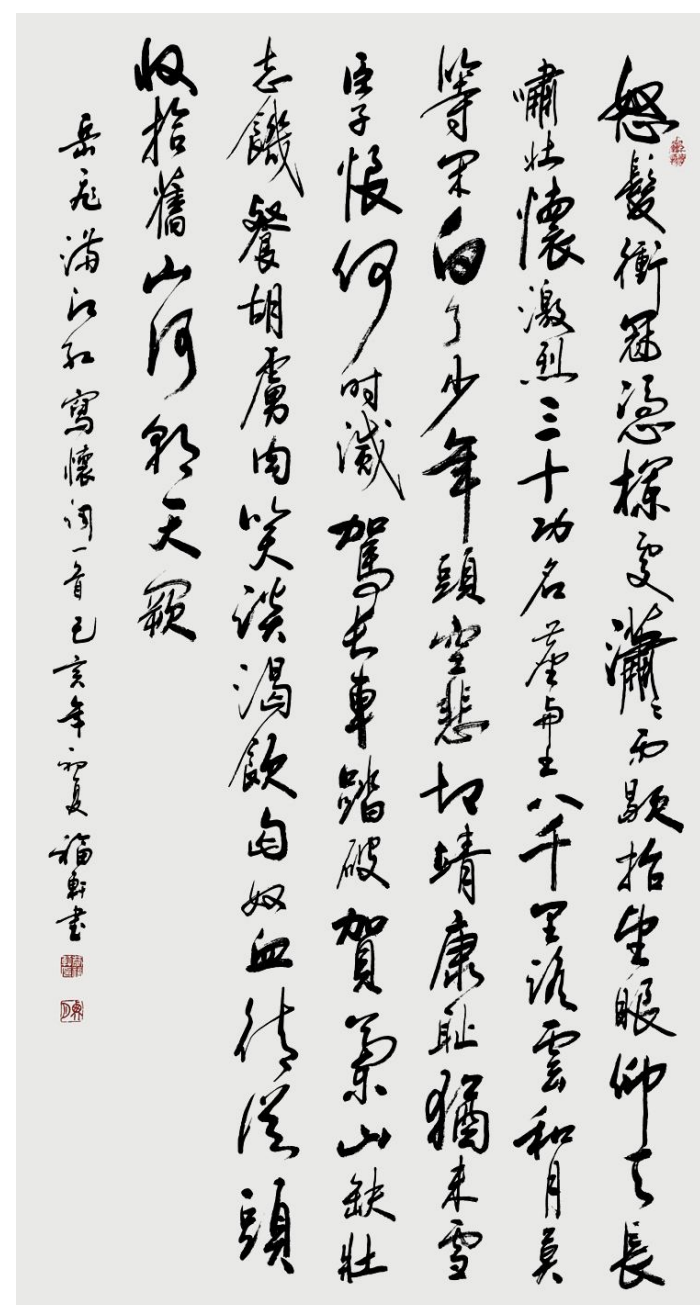 怒髮衝冠憑欄處瀟〻雨歇抬望眼仰天長
嘯壯懷激烈三十功名塵與土八千里路雲和月莫
等閑白了少年頭空悲切靖康恥猶未雪
臣子恨何時滅駕長車踏破賀蘭山缺壯
志飢餐胡虜肉笑談渴飲匈奴血待從頭
收拾舊山河朝天闕
岳飛滿江紅寫懷词一首己亥年初夏福軒書